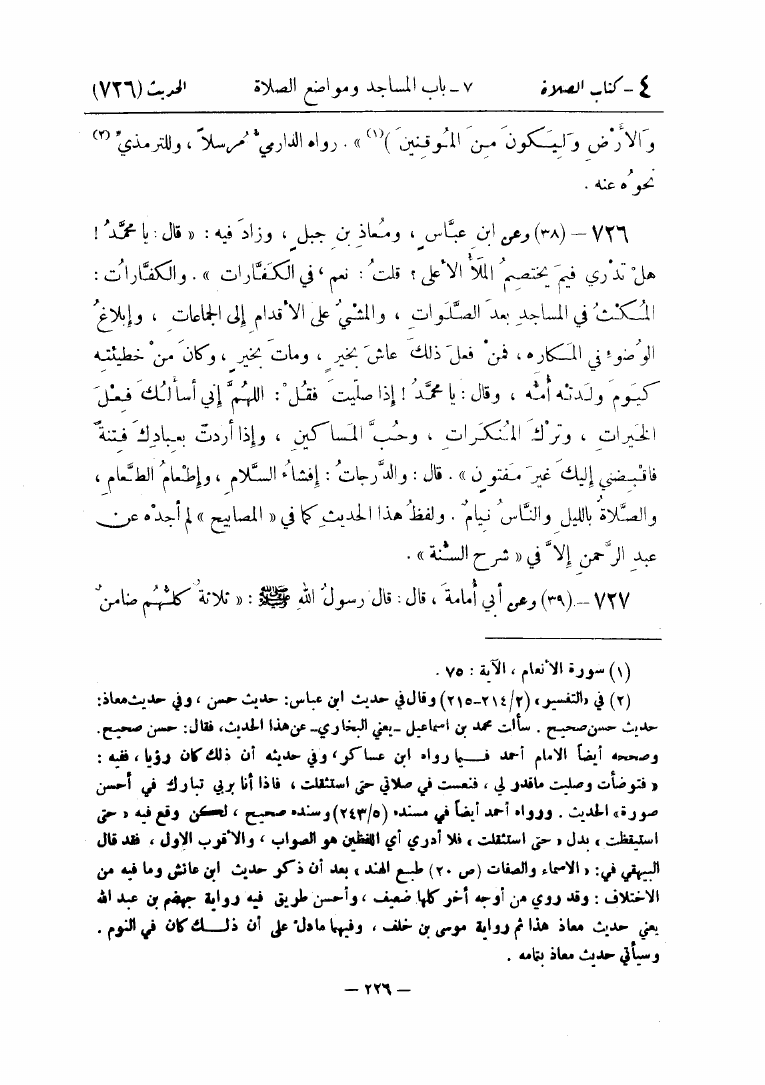 ٤ - كتاب الصلاة ٧ - باب المساجد ومواضع الصلاة الحديث (٧٢٦)
والأَرْضِ وَلِيَكونَ مِنَ المُوقِنينَ )(١) » . رواه الدارميُّ مُرسلاً ، وللترمذيِّ (٢)
نحوُه عنه .
٧٢٦ – (٣٨) وعن ابنِ عبَّاسٍ ، ومُعاذِ بنِ جبلٍ ، وزادَ فيه : « قال : يا محمَّدُ !
هلْ تدْري فيمَ يختصِمُ المَلَأُ الأعلى ؟ قلتُ : نعم ، في الكَفَّارات » . والكفَّاراتُ :
المُكْثُ في المساجدِ بعدَ الصَّلَواتِ ، والمشْيُ على الأقدامِ إلى الجماعاتِ ، وإبلاغُ
الوُضوءِ في المَكارِه ، فمنْ فعلَ ذلكَ عاشَ بخيرٍ ، وماتَ بخيرٍ ، وكانَ منْ خطيئتِه
كيَومَ ولَدتْه أمُّه ، وقال : يا محمَّدُ ! إذا صلَّيتَ فقُلْ : اللهُمَّ إني أسألُكَ فِعْلَ
الخيراتِ ، وتَرْكَ المُنكَراتِ ، وحُبَّ المَساكينِ ، وإذا أردتَّ بعبادِكَ فِتنةً
فاقْبِضني إليكَ غيرَ مَفتونٍ » . قال : والدَّرجاتُ : إفشاءُ السَّلامِ ، وإطْعامُ الطَّعامِ ،
والصَّلاةُ بالليلِ والنَّاسُ نِيامٌ . ولفظُ هذا الحديثِ كما في « المصابيح » لم أجدْه عن
عبدِ الرَّحمنِ إلاَّ في « شرح السُّنة » .
٧٢٧ – (٣٩) وعن أبي أُمامةَ ، قال : قال رسولُ اللهِ ﷺ : « ثلاثةٌ كلُّهُم ضامنٌ
(١) سورة الأنعام ، الآية : ٧٥ .
(٢) في «التفسير» (٢١٤/٢-٢١٥) وقال في حديث ابن عباس: حديث حسن ، وفي حديث معاذ:
حديث حسن صحيح . سألت محمد بن اسماعيل -يعني البخاري- عن هذا الحديث، فقال: حسن صحيح.
وصححه أيضاً الامام أحمد فيما رواه ابن عساكر، وفي حديثه أن ذلك كان رؤيا ، ففيه :
« فتوضأت وصليت ماقدر لي ، فنعست في صلاتي حتى استثقلت ، فاذا أنا بربي تبارك في أحسن
صورة» الحديث . ورواه أحمد أيضاً في مسنده (٢٤٣/٥) وسنده صحيح ، لكن وقع فيه « حتى
استيقظت » بدل « حتى استثقلت » فلا أدري أي اللفظين هو الصواب ، والأقرب الاول ، فقد قال
البيهقي في: « الاسماء والصفات (ص ٢٠) طبع الهند » بعد أن ذكر حديث ابن عائش وما فيه من
الاختلاف : وقد روي من أوجه أخر كلها ضعيف ، وأحسن طريق فيه رواية جهضم بن عبد الله
يعني حديث معاذ هذا ثم رواية موسى بن خلف ، وفيهما مادل على أن ذلك كان في النوم .
وسيأتي حديث معاذ بتمامه .
– ٢٢٦ –